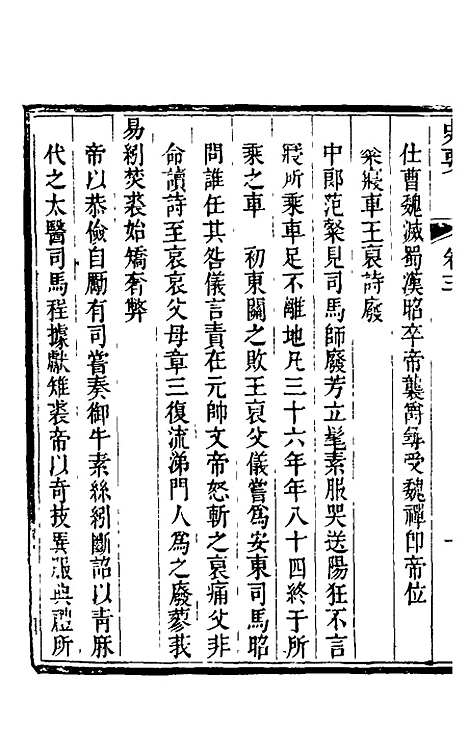 史要
卷三
仕曹魏滅蜀漢昭卒帝襲爵尋受魏禪卽帝位
粲寢車王哀詩廢
中郎范粲見司馬師廢芳立髦素服哭送陽狂不言
寢所乘車足不離地凡三十六年年八十四終于所
乘之車　初東關之敗王哀父儀嘗爲安東司馬昭
問誰任其咎儀言責在元帥文帝怒斬之哀痛父非
命讀詩至哀哀父母章三復流涕門人爲之廢蓼莪
易紖焚裘始矯奢弊
帝以恭儉自勵有司嘗奏御牛素絲紖斷詔以靑麻
代之太醫司馬程據獻雉裘帝以奇技異服典禮所